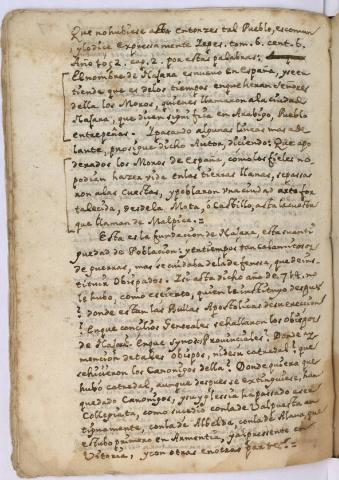 Que no hubiese asta entonzes tal Pueblo, es comun
y lo dice expresamente Yepes. tom. 6. cent. 6.
Año 1052. cap. 2. por estas palabras:
El nombre de Naxara es nuevo en España, y se en
tiende que es delos tiempos en que heran Señores
della los Moros, quienes llamaron a la ciudad
Naxara, que quiere significa en Arabigo, Pueblo
entre peñas. I pasando algunas lineas mas ade
lante, prosigue dicho Autor, diciendo: Que apo
derados los Moros de España, como los fieles no
podian hazer vida en las tierras llanas, se pasa
ron a las Cuestas, y poblaron una ciudad for
talecida, desde la Mota, o Castillo, asta la cuesta
que llaman de Malpica.
Esta es la fundacion de Naxara, esta su anti
guedad de Poblacion: y en tiempos tan calamitosos
de guerras, mas se cuidaba de la defensa, que de ins
tituir Obispados. I si asta dicho año de 714. no
le hubo, como es cierto, quien le instituyo despues
? donde estan las Bulas Apostolicas de su ereccion
? En que concilios Generales se hallaron los Obispos
de Naxara? En que Synodos Provinciales? Donde ay
mencion de tales Obispos, ni de su catedral? que
se hicieron los Canonigos della? Donde quiera que
hubo catedral, aunque despues se extinguiese, han
quedado Canonigos, y su yglesia ha pasado a ser
Collegiata, como sucedio con la de Valpuesta an
tiguamente, con la de Albelda, con la de Alava, que
estubo primero en Armentia, y al presente en
Vitoria, y con otras en otras partes.